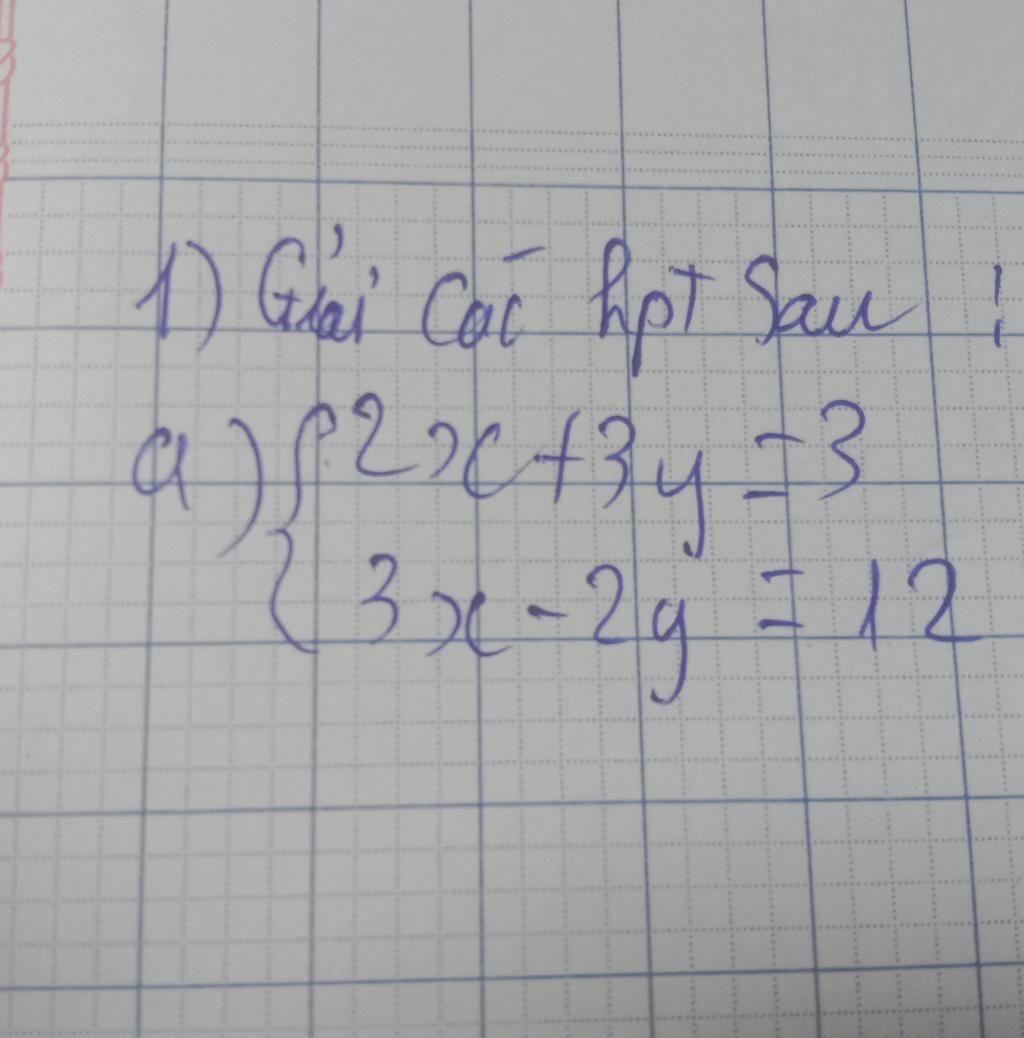 1) Giải các hpt sau :
a) { 2x + 3y = 3
3x - 2y = 12